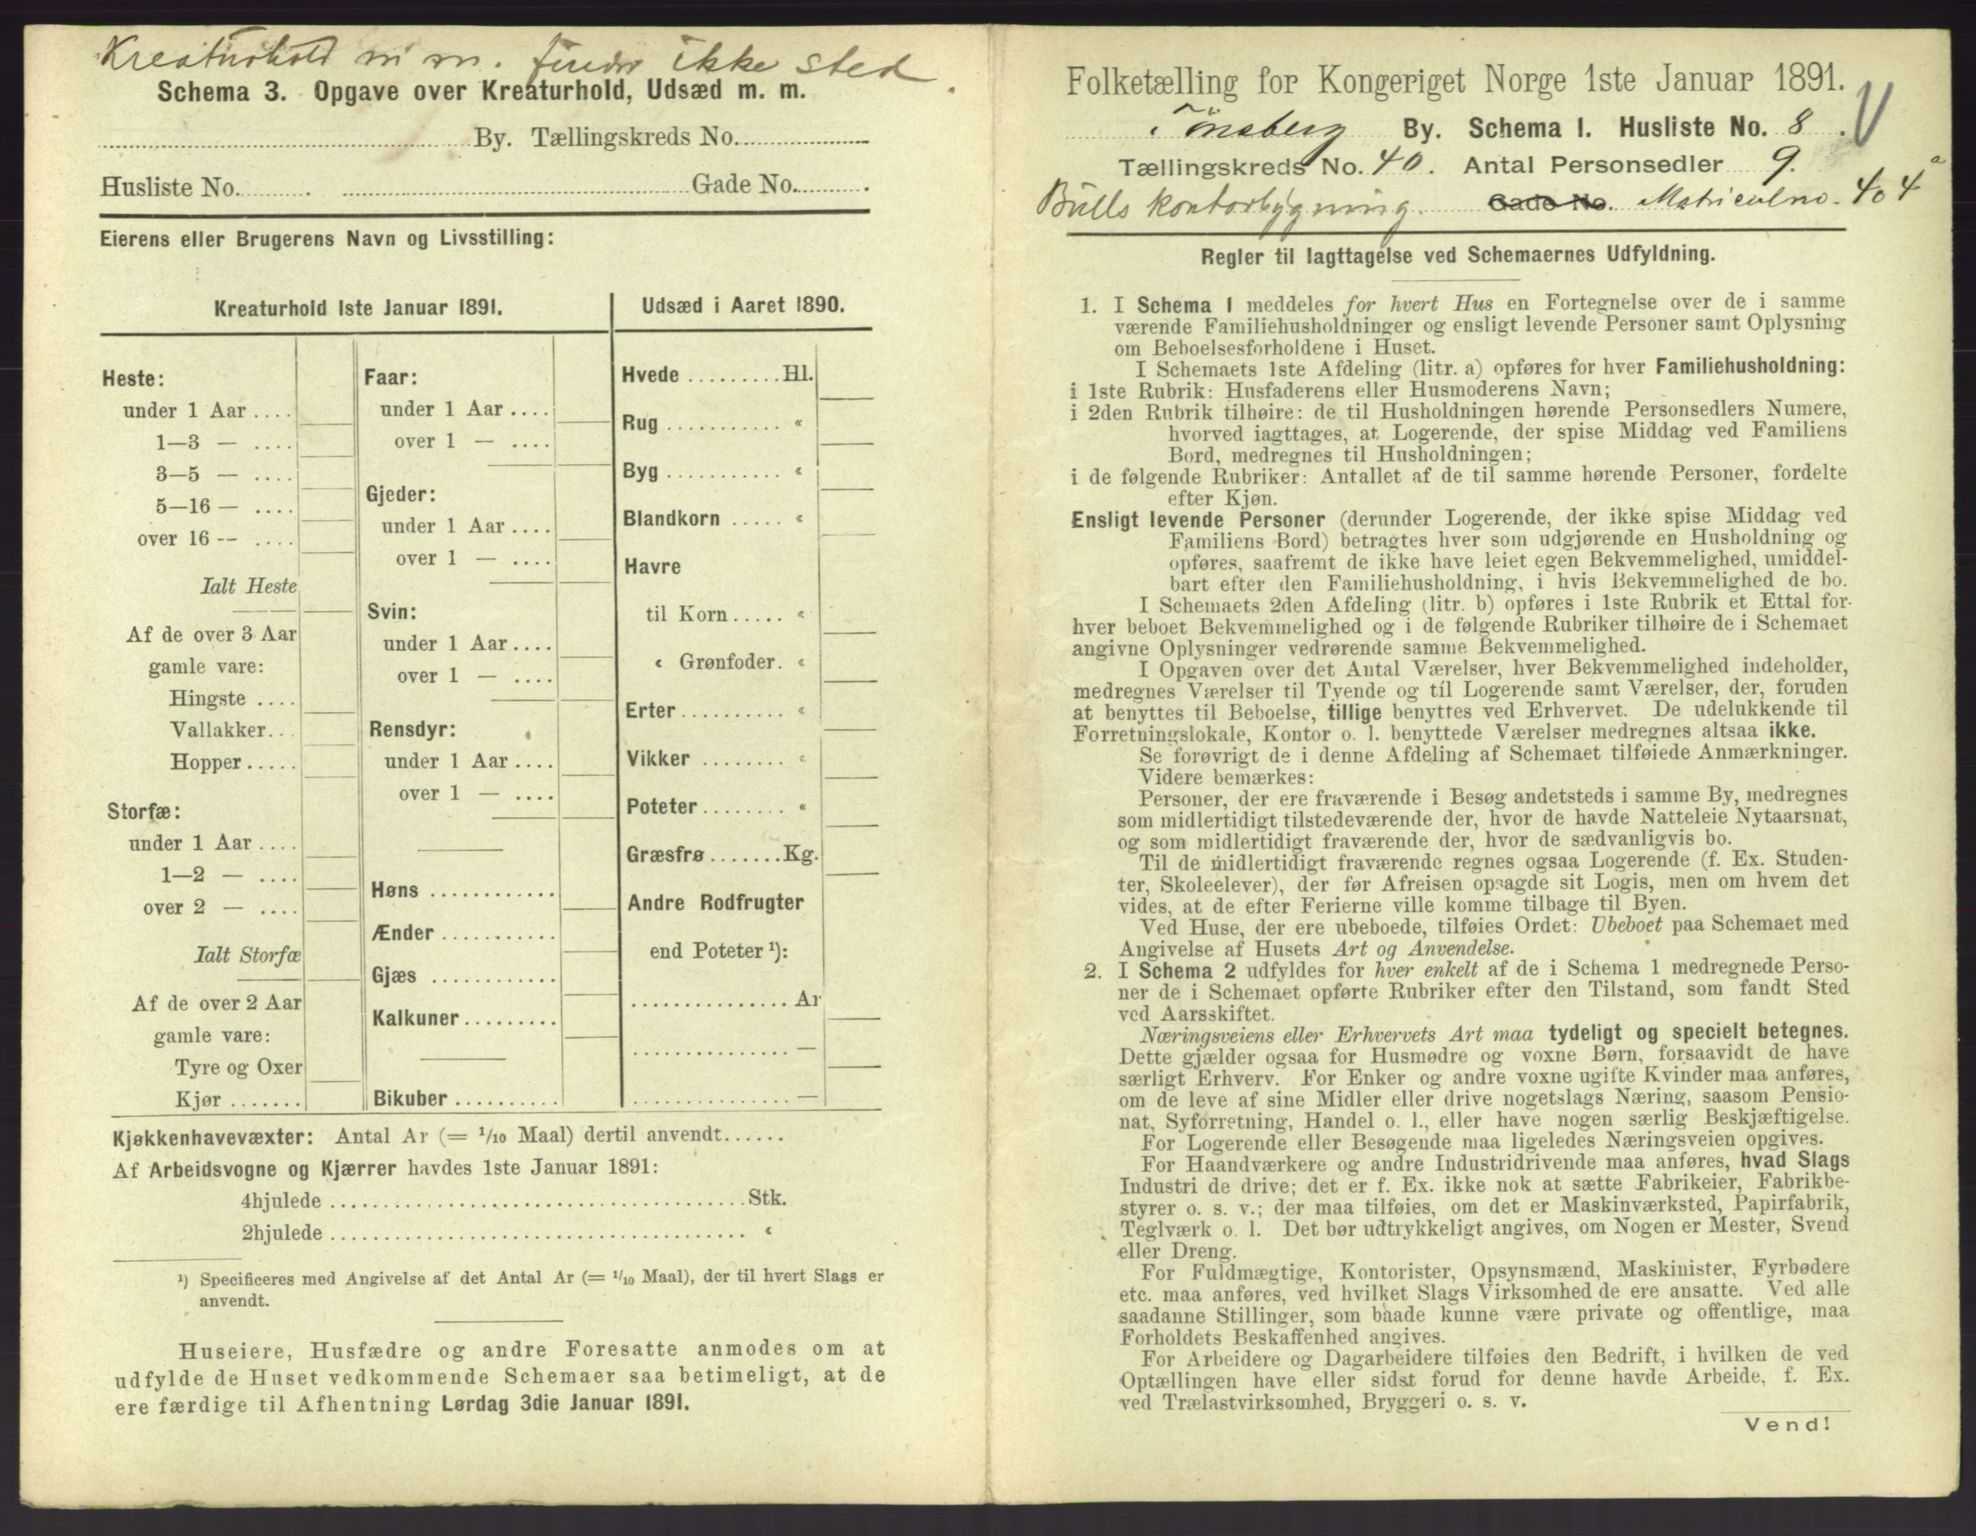 Kreaturhold m. m. finder ikke sted
Schema 3. Opgave over Kreaturhold, Udsæd m. m.
By. Tællingskreds No.
Husliste No. Gade No.
Eierens eller Brugerens Navn og Livsstilling:
Kreaturhold 1ste Januar 1891.
Heste:
under 1 Aar ....
1—3 — ....
3—5 — ....
5—16 — ....
over 16 -- ....
Ialt Heste
Af de over 3 Aar
gamle vare:
Hingste ....
Vallakker...
Hopper .....
Storfæ:
under 1 Aar ....
1—2 — ....
over 2 — ....
Ialt Storfæ
Af de over 2 Aar
gamle vare:
Tyre og Oxer
Kjør .......
Faar:
under 1 Aar ....
over 1 — ....
Gjeder:
under 1 Aar ....
over 1 — ....
Svin:
under 1 Aar ....
over 1 — ....
Rensdyr:
under 1 Aar ....
over 1 — ....
Høns ............
Ænder ...........
Gjæs ............
Kalkuner.........
Bikuber ..........
Udsæd i Aaret 1890.
Hvede .........Hl.
Rug ........... «
Byg ........... «
Blandkorn ..... «
Havre
til Korn ..... «
« Grønfoder. «
Erter .......... «
Vikker ........ «
Poteter ........ «
Græsfrø.......Kg.
Andre Rodfrugter
end Poteter ¹):
............... Ar
............... —
............... —
Kjøkkenhavevæxter: Antal Ar (= 1/10 Maal) dertil anvendt......
Af Arbeidsvogne og Kjærrer havdes 1ste Januar 1891:
4hjulede ........................................ Stk.
2hjulede ........................................ «
¹) Specificeres med Angivelse af det Antal Ar (= 1/10 Maal), der til hvert Slags er
anvendt.
Huseiere, Husfædre og andre Foresatte anmodes om at
udfylde de Huset vedkommende Schemaer saa betimeligt, at de
ere færdige til Afhentning Lørdag 3die Januar 1891.
Folketælling for Kongeriget Norge 1ste Januar 1891.
Tönsberg By. Schema 1. Husliste No. 8.
Tællingskreds No. 40. Antal Personsedler 9.
Bulls kontorbygning. Gade No. Matriculno. 404 a
Regler til Iagttagelse ved Schemaernes Udfyldning.
1. I Schema 1 meddeles for hvert Hus en Fortegnelse over de i samme
værende Familiehusholdninger og ensligt levende Personer samt Oplysning
om Beboelsesforholdene i Huset.
I Schemaets 1ste Afdeling (litr. a) opføres for hver Familiehusholdning:
i 1ste Rubrik: Husfaderens eller Husmoderens Navn;
i 2den Rubrik tilhøire: de til Husholdningen hørende Personsedlers Numere,
hvorved iagttages, at Logerende, der spise Middag ved Familiens
Bord, medregnes til Husholdningen;
i de følgende Rubriker: Antallet af de til samme hørende Personer, fordelte
efter Kjøn.
Ensligt levende Personer (derunder Logerende, der ikke spise Middag ved
Familiens Bord) betragtes hver som udgjørende en Husholdning og
opføres, saafremt de ikke have leiet egen Bekvemmelighed, umiddel-
bart efter den Familiehusholdning, i hvis Bekvemmelighed de bo.
I Schemaets 2den Afdeling (litr. b) opføres i 1ste Rubrik et Ettal for
hver beboet Bekvemmelighed og i de følgende Rubriker tilhøire de i Schemaet
angivne Oplysninger vedrørende samme Bekvemmelighed.
I Opgaven over det Antal Værelser, hver Bekvemmelighed indeholder,
medregnes Værelser til Tyende og til Logerende samt Værelser, der, foruden
at benyttes til Beboelse, tillige benyttes ved Erhvervet. De udelukkende til
Forretningslokale, Kontor o. l. benyttede Værelser medregnes altsaa ikke.
Se forøvrigt de i denne Afdeling af Schemaet tilføiede Anmærkninger.
Videre bemærkes:
Personer, der ere fraværende i Besøg andetsteds i samme By, medregnes
som midlertidigt tilstedeværende der, hvor de havde Natteleie Nytaarsnat,
og som midlertidigt fraværende der, hvor de sædvanligvis bo.
Til de midlertidigt fraværende regnes ogsaa Logerende (f. Ex. Studen-
ter, Skoleelever), der før Afreisen opsagde sit Logis, men om hvem det
vides, at de efter Ferierne ville komme tilbage til Byen.
Ved Huse, der ere ubeboede, tilføies Ordet: Ubeboet paa Schemaet med
Angivelse af Husets Art og Anvendelse.
2. I Schema 2 udfyldes for hver enkelt af de i Schema 1 medregnede Perso-
ner de i Schemaet opførte Rubriker efter den Tilstand, som fandt Sted
ved Aarsskiftet.
Næringsveiens eller Erhvervets Art maa tydeligt og specielt betegnes.
Dette gjælder ogsaa for Husmødre og voxne Børn, forsaavidt de have
særligt Erhverv. For Enker og andre voxne ugifte Kvinder maa anføres,
om de leve af sine Midler eller drive nogetslags Næring, saasom Pensio-
nat, Syforretning, Handel o. l., eller have nogen særlig Beskjæftigelse.
For Logerende eller Besøgende maa ligeledes Næringsveien opgives.
For Haandværkere og andre Industridrivende maa anføres, hvad Slags
Industri de drive; det er f. Ex. ikke nok at sætte Fabrikeier, Fabrikbe-
styrer o. s. v.; der maa tilføies, om det er Maskinværksted, Papirfabrik,
Teglværk o. l. Det bør udtrykkeligt angives, om Nogen er Mester, Svend
eller Dreng.
For Fuldmægtige, Kontorister, Opsynsmænd, Maskinister, Fyrbødere
etc. maa anføres, ved hvilket Slags Virksomhed de ere ansatte. Ved alle
saadanne Stillinger, som baade kunne være private og offentlige, maa
Forholdets Beskaffenhed angives.
For Arbeidere og Dagarbeidere tilføies den Bedrift, i hvilken de ved
Optællingen have eller sidst forud for denne havde Arbeide, f. Ex.
ved Trælastvirksomhed, Bryggeri o. s. v.
Vend!